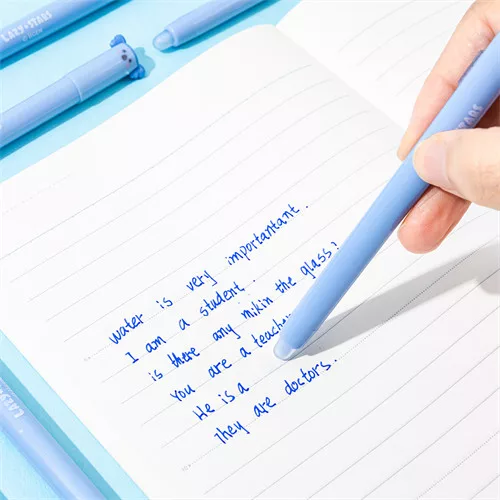 LAZY STARS
LAZY STARS
STARS
water is very importantant.
I am a student.
is there any mikin the glass?
You are a teache
He is a
They are doctors.
LAZY STARS